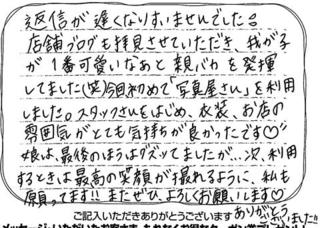 返信が遅くなりすいませんでした。
店舗ブログも拝見させていただき、我が子
が1番可愛いなあと親バカを発揮
してました(笑)今回初めて「写真屋さん」を利用
しました。スタッフさんをはじめ、衣装、お店の
雰囲気がとても気持ちが良かったです♡
娘は最後のほうはグズッてましたが…次、利用
するときは最高の笑顔が撮れるように、私も
願ってます!!またぜひ、よろしくお願いします♡
ご記入いただきありがとうございます
ありがとうございました!!